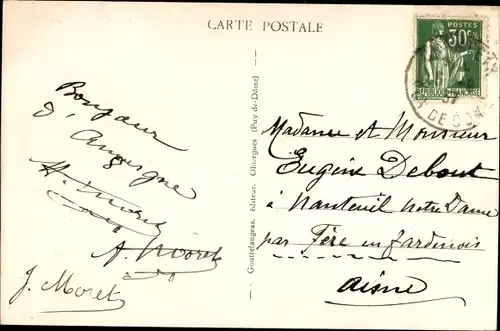 CARTE POSTALE
POSTES
30c
REPUBLIQUE FRANÇAISE
DE DOM
Bonjour
d'Auvergne
H. Moret
A. Moret
J. Moret
Gouttefangeas, éditeur. Olliergues (Puy-de-Dôme)
Madame et Monsieur
Eugène Debout
à Nanteuil Notre Dame
par Fère en Tardenois
Aisne